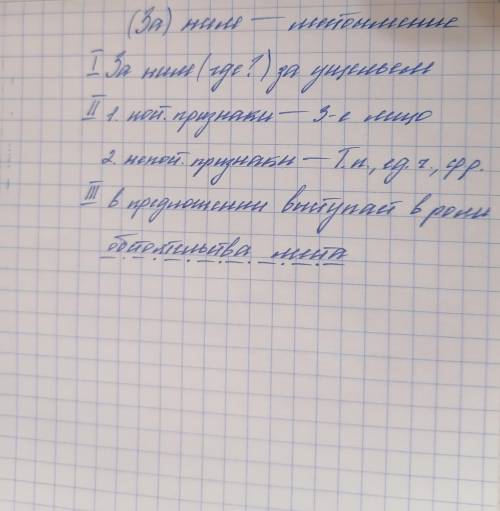 (За) ним — местоимение
I За ним (где?) за ущельем
II 1. пост. признаки — 3-е лицо
2. непост. признаки — Т.п., ед.ч., ср.р.
III в предложении выступает в роли
обстоятельства места